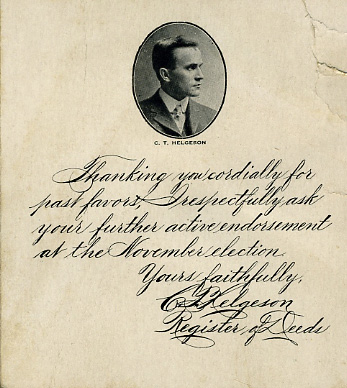 C. T. HELGESON
Thanking you cordially for
past favors, I respectfully ask
your further active endorsement
at the November election.
Yours faithfully,
C T Helgeson
Register of Deeds